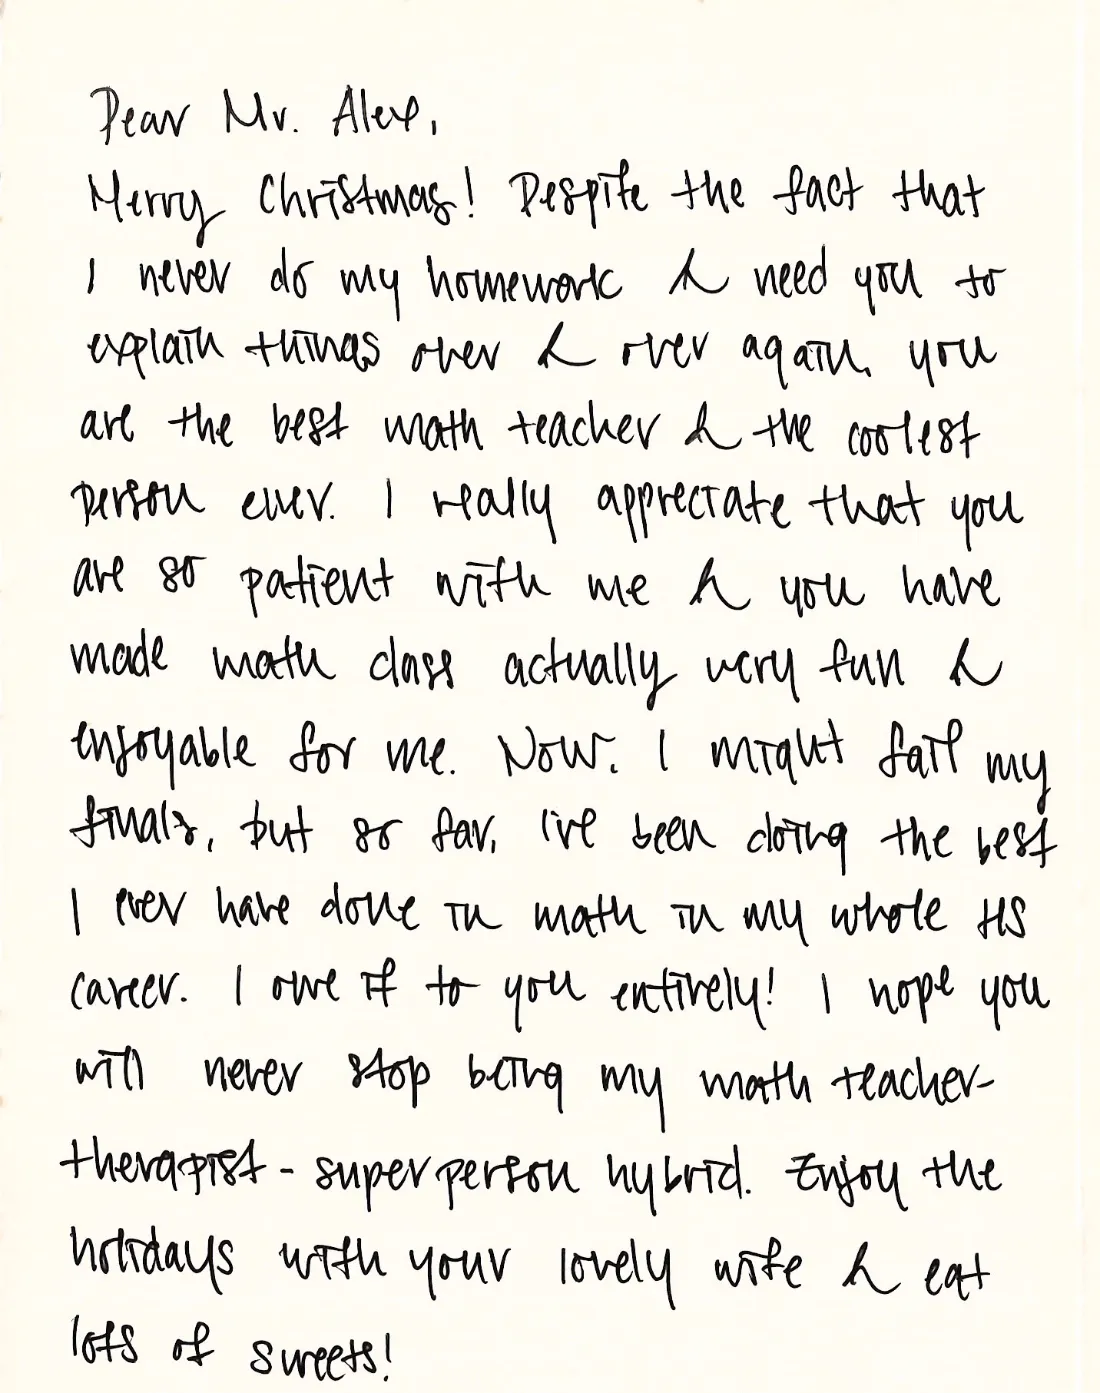 Dear Mr. Alex,
Merry Christmas! Despite the fact that
I never do my homework & need you to
explain things over & over again, you
are the best math teacher & the coolest
person ever. I really appreciate that you
are so patient with me & you have
made math class actually very fun &
enjoyable for me. Now, I might fail my
finals, but so far, I've been doing the best
I ever have done in math in my whole HS
career. I owe it to you entirely! I hope you
will never stop being my math teacher-
therapist-superperson hybrid. Enjoy the
holidays with your lovely wife & eat
lots of sweets!